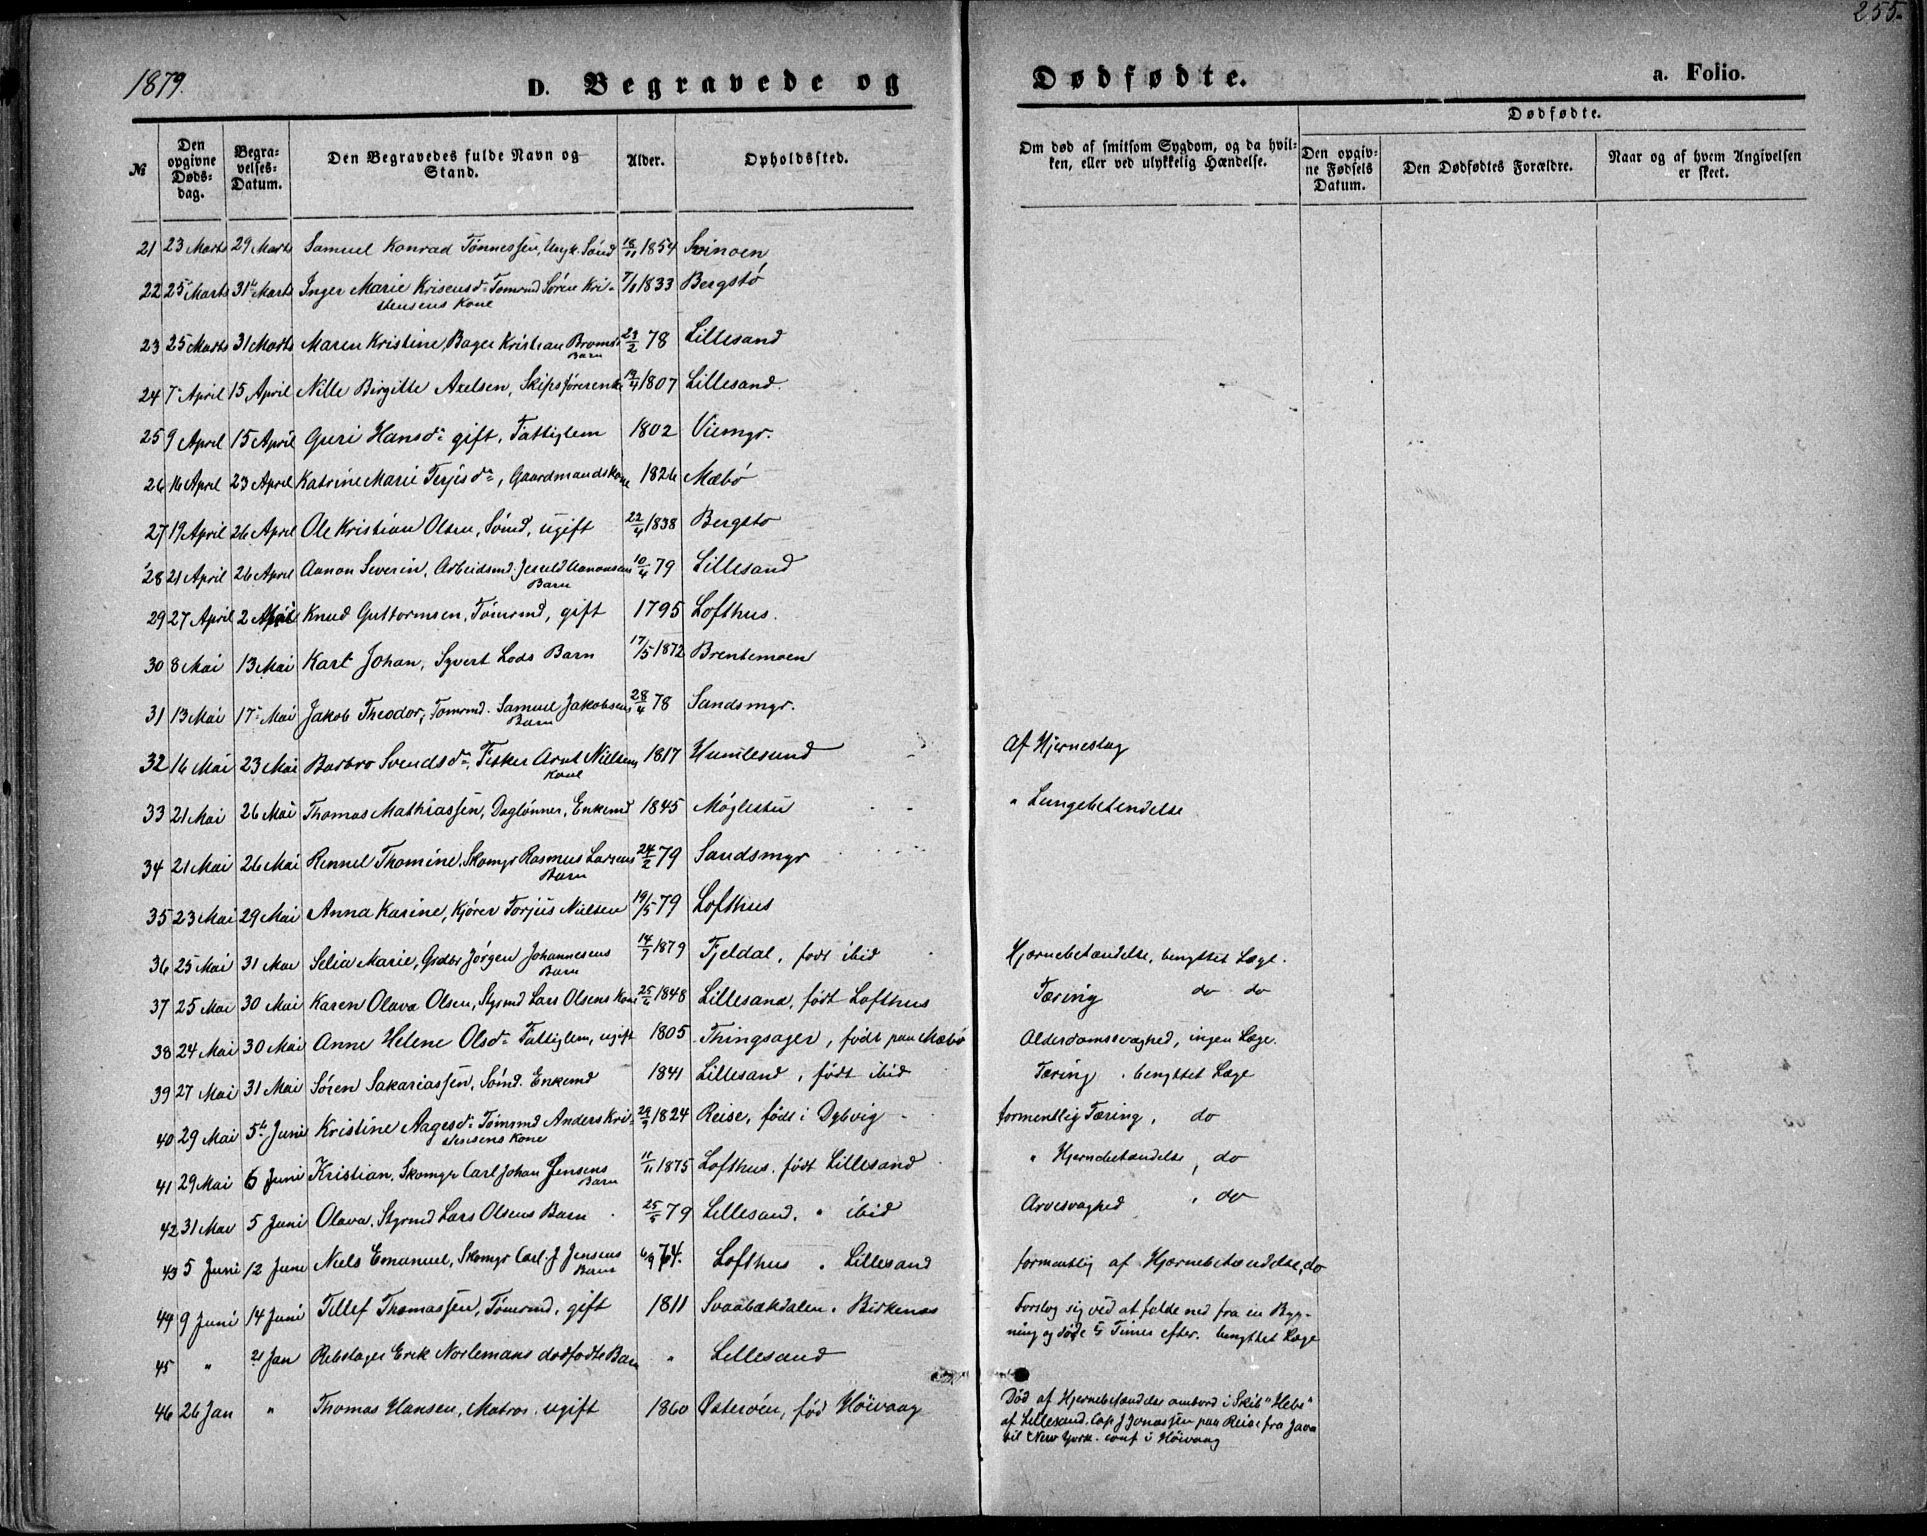 255.
1879.
D. Begravede og Dødfødte.
a. Folio.
№
Den opgivne Dødsdag.
Begravelses-Datum.
Den Begravedes fulde Navn og Stand.
Alder.
Opholdssted.
Om død af smitsom Sygdom, og da hvilken, eller ved ulykkelig Hændelse.
Dødfødte.
Den opgivne Fødsels Datum.
Den Dødfødtes Forældre.
Naar og af hvem Angivelsen er skeet.
21 23 Marts 29 Marts Samuel Konrad Tønnessen, Ungk. Sömd 18/11 1854 Svinoen
22 25 Marts 31te Marts Inger Marie Krisensd: Tömmd Sören Kristensens Kone 7/1 1833 Bergstö
23 25 Marts 31 Marts Maren Kristine, Bager Kristian Broms Barn 23/2 78 Lillesand
24 7 April 15 April Nille Birgitte Axelsen, Skipsförerenke 1807 Lillesand.
25 9 April 15 April Guri Hansd: gift, Fattiglem 1802 Viemyr.
26 16 April 23 April Katrine Marie Terjesdn, Gaardmandskone 1826 Mæbö
27 19 April 26 April Ole Kristian Olsen, Sömd, ugift 22/4 1838 Bergsto
28 21 April 26 April Aanon Severin, Arbeidsmd. Aanonsens Barn 10/4 79 Lillesand
29 27 April 2 Mai Knud Guttormsen, Tömrmd, gift 1795 Lofthus.
30 8 Mai 13 Mai Karl Johan, Syvert Lods Barn 17/5 1872 Brentemoen
31 13 Mai 17 Mai Jakob Theodor, Tomrmd. Samuel Jakobsens Barn 28/4 78 Sandsmyr.
32 16 Mai 23 Mai Barbro Svendsdn, Fisker Arnt Nielsens Kone 1817 Humlesund Af Hjerneslag
33 21 Mai 26 Mai Thomas Mathiassen, Daglönner, Enkemd 1845 Möglestu " Lungebetendelse
34 21 Mai 26 Mai Rennel Thomine, Skomgr Rasmus Larsens Barn 24/2 79 Sandsmyr
35 23 Mai 29 Mai Anna Karine, Kjörer Torjus Nielsen 19/5 79 Lofthus
36 25 Mai 31 Mai Selia Marie, Grdbr Jörgen Johannesens Barn 1879 Fjeldal, född ibid Hjernebetændelse, benyttet Læge.
37 25 Mai 30 Mai Karen Olava Olsen, Styrmd Lars Olsens Kone 25/6 1848 Lillesand, født Lofthus Tæring do do
38 24 Mai 30 Mai Anne Helene Olsd: Fattiglem, ugift 1805 Thingsager, født paa Mæbö Alderdomssvaghed, ingen Læge.
39 27 Mai 31 Mai Sören Sakariassen, Sömd. Enkemd 1841 Lillesand, født ibid Tæring, benyttet Læge
40 29 Mai 5te Juni Kristine Aagesd: Tömrmd Anders Kristensens Kone 1824 Reise, født i Dybvig formentlig Tæring, do
41 29 Mai 6 Juni Kristian, Skomgr Carl Johan Jensens Barn 11/11 1875 Lofthus, født Lillesand " Hjernebetændelse, do
42 31 Mai 5 Juni Olava, Styrmd Lars Olsens Barn 25/5 79 Lillesand, " ibid Arvesvaghed , do
43 5 Juni 12 Juni Niels Emanuel, Skomgr Carl J Jensens Barn 6/9 74. Lofthus " Lillesand formentlig af Hjernebetændelse, do
44 9 Juni 14 Juni Tellef Thomassen, Tömrmd, gift 1811 Svaabækdalen " Birkenæs Forslog sig ved at falde ned fra en Bygning og døde 5 Timer efter. benyttet Læge
45 " 21 Jan Rebslager Erik Norlemans dødfødte Barn " Lillesand
46 26 Jan " Thomas Hansen, Matros, ugift 1860 Österöen, fød Höivaag Død af Hjernebetændelse ombord i Skib "Hebe"
af Lillesand. Cap J Jonassen paa Reise fra Java
til New York. conf i Höivaag